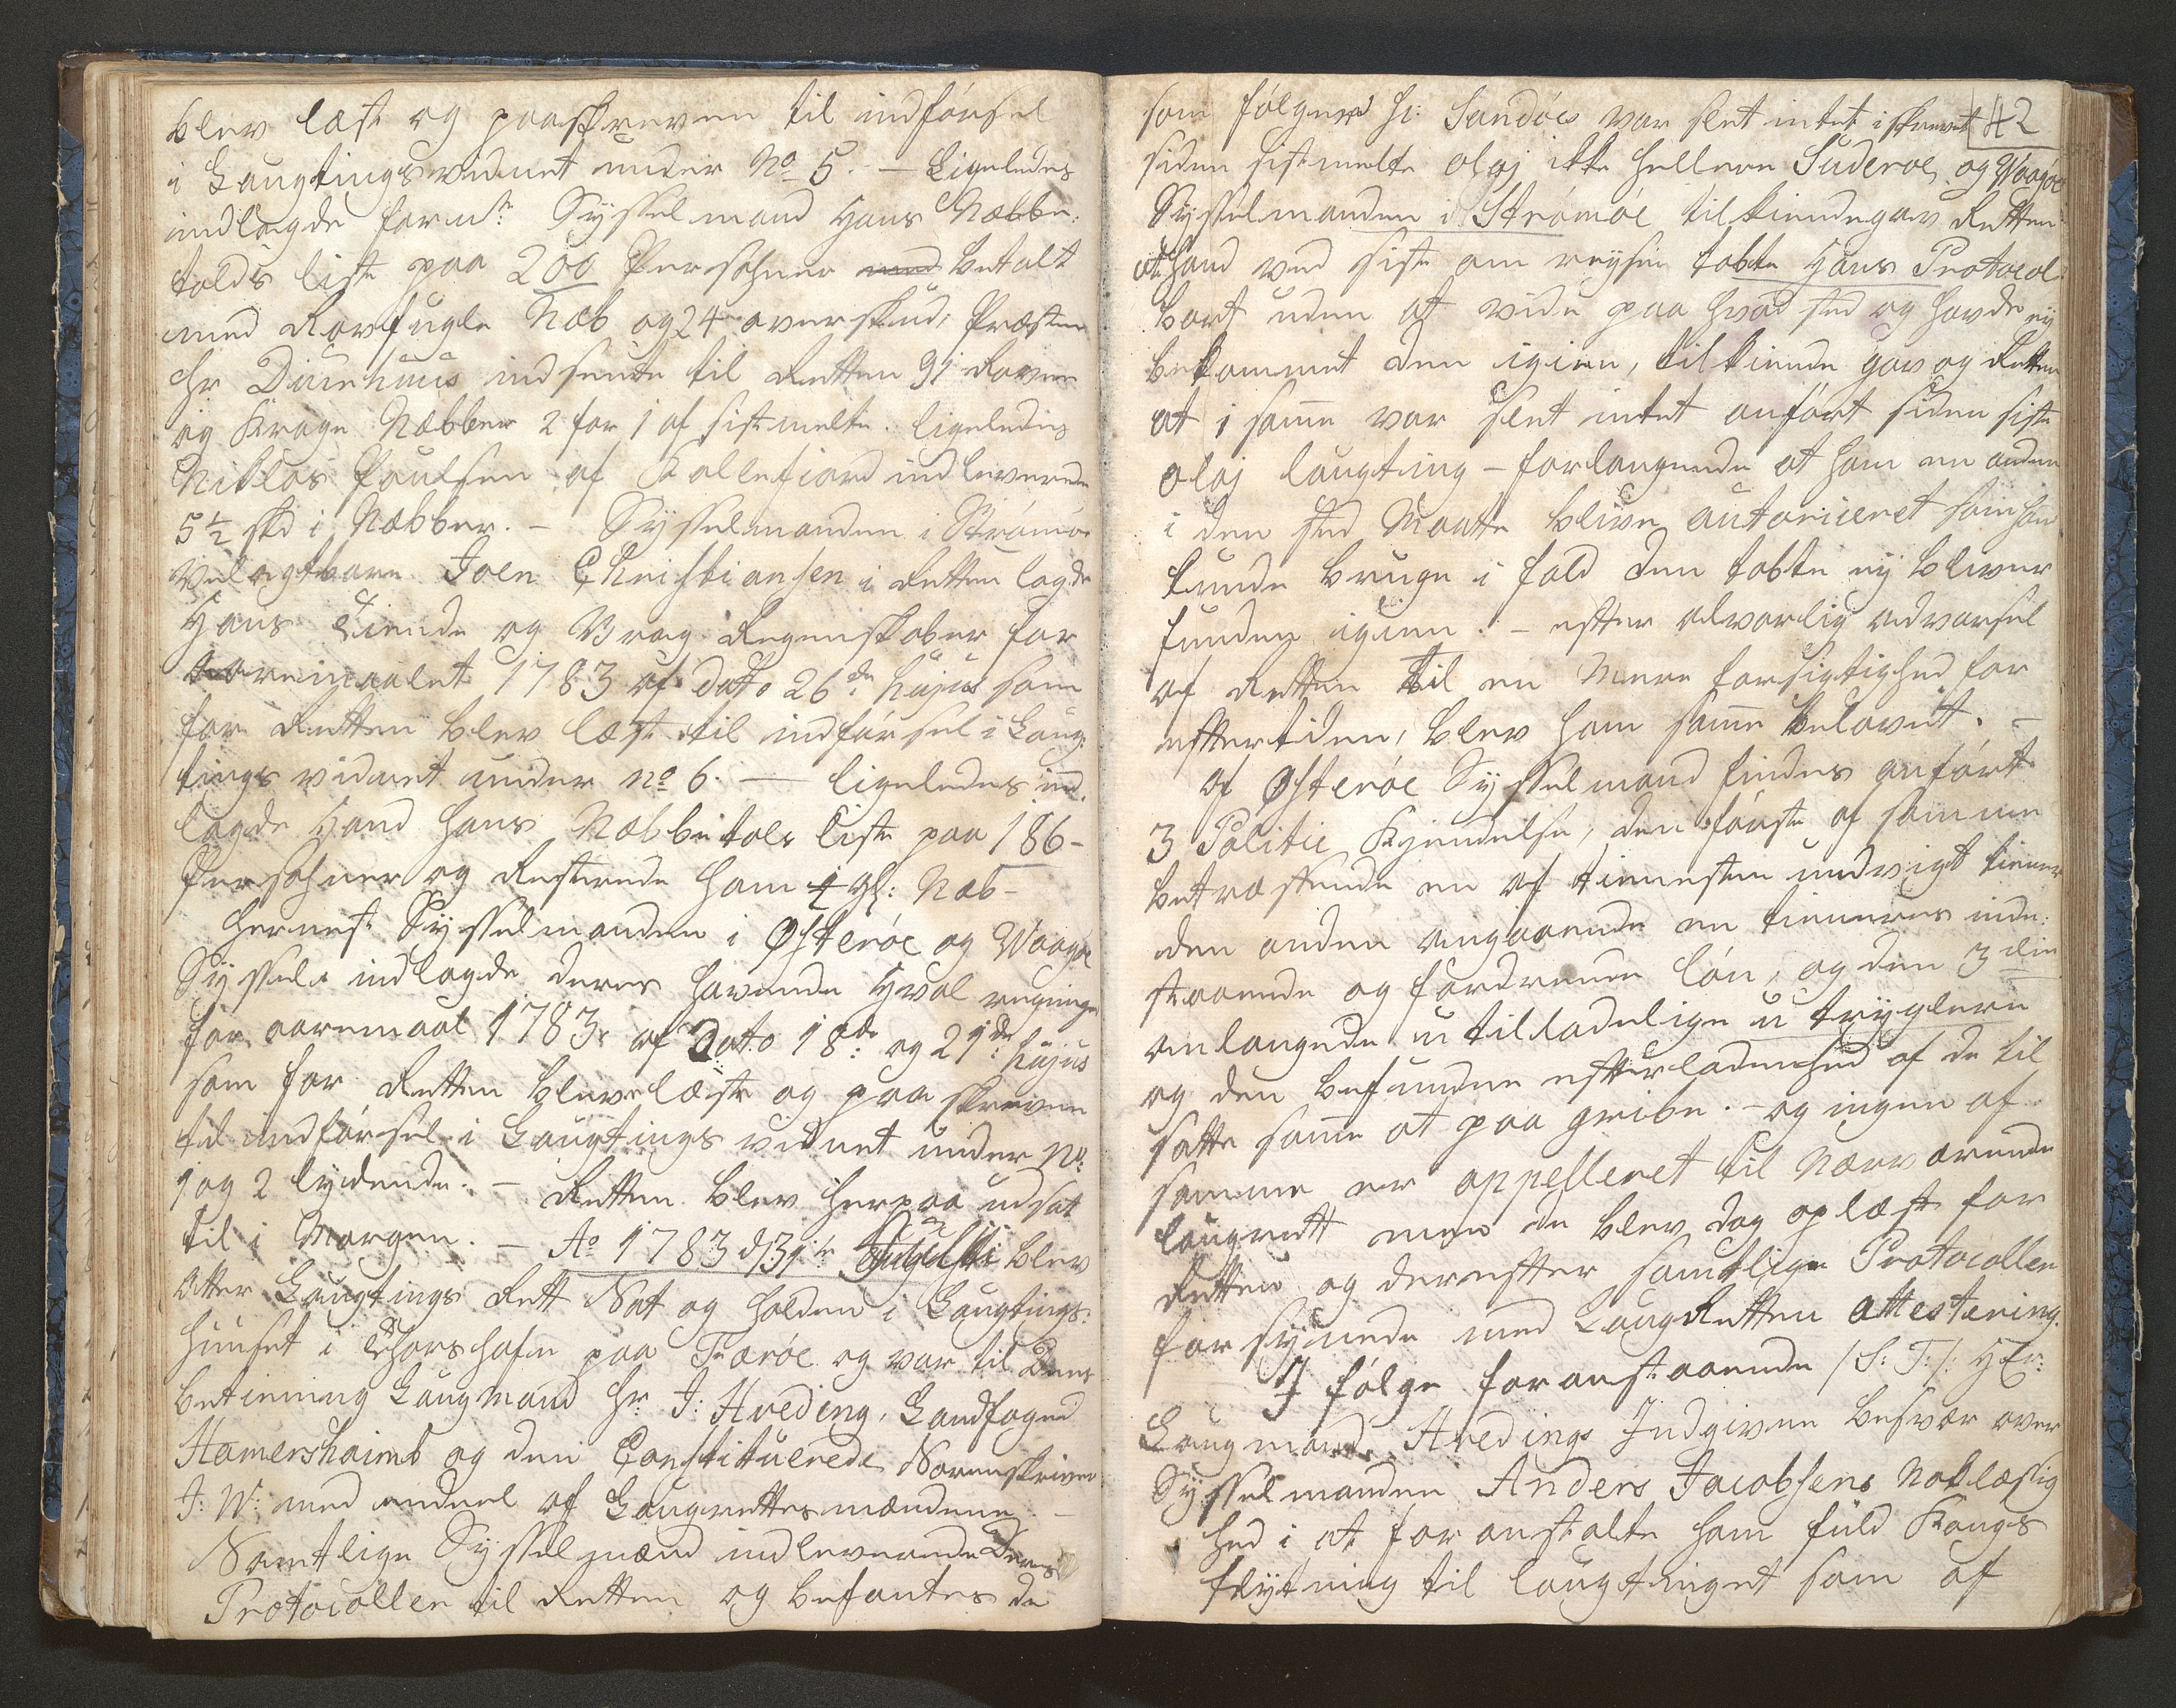 blev læst og paaskreven til indførsel
i Laugtingsvidnet under No 5. — Ligeledes
indlagde formte: Sysselmand Hans Næbbe-
tolds liste paa 200 Persohner betalt
med Rovfugle Næb og 24 overskud, Præsten
Hr Duuehuus indsendte til Retten 91 Ravne
og Krage Næbber 2 for 1 af sistmelte. ligeledes
Niklas Poulsen af Kollefiord indleverede
5½ skd i Næbber. — Sysselmanden i Strømøe
Velagtbare Joen Christiansen i Retten lagde
Hans Tiende og Vrag Regenskaber for
aaremaalet 1783 af dato 26de hujus som
for Retten blev læst til indførsel i Laug-
tings vidnet under no 6. — ligeledes ind-
lagde Hand hans Næbbetols liste paa 186-
Persohner og Resterede ham 4 Næb-
Hernest Sysselmanden i Østerøe og Waagøe
Syssele indlagde deres havende Hval regninger
for aaremaal 1783 af Dato 18de: og 21de: hujus
som for Retten bleve læste og paa skreven
til indførsel i Laugtings vidnet under No:
1 og 2 lydende. — Retten blev herpaa udsat
til i Morgen. — Ao 1783 d 31te Julii blev
Atter Laugtings Rett Sat og holden i Laugtings-
huuset i Thorshafn paa Færøe og var til Dens
betiening Laugmand Hr J: Hveding, Landfoged
Hamershaimb og den Constituerede Sorenskriver
J: W: med endeel af Laugrettesmændene. —
Samtlige Sysselmænd indleverede Deres
Protocoller til Retten og befantes de
42
som følger i Sandøes var slet intet iskrevet
siden sistmelte olaj ikke hellere Suderøe og Waagøe
Sysselmanden i Strømøe tilkiendegav Retten
at hand ved siste om reysen tabte Hans Protocol
bort uden at vide paa hvad sted og havde ey
bekommet den igien, tilkiende gav og Retten
at i same var slet intet anført siden siste
olaj laugting – forlangende at ham en anden
i den sted Maatte blive autoriceret som han
kunde bruge i fald den tabte ey bliver
funden igien. — efter alvorlig advarsel
af Retten til en Mere forsigtighed for
effterdtiden, blev ham same belovet. —
Af Østerøe Sysselmand findes anført
3 Politie Kjendelse, den første af samme
betræffende en af tienesten undvigt tiener
den anden angaaende en tieneres inde-
staaende og fordrende løn, og den 3die
anlangende utilladelige u tryglere
og den befundne efterladenhed af de til
satte same at paa gribe. — og ingen af
samme er appelleret til Nærværende
laugrett men de blev dog oplæst for
Retten og derefter samtlige Protocoller
forsynede med LaugRetten attestering.
I følge foranstaaende /S: T:/: HEr:
Laugmand Hvedings Indgivne besvær over
Sysselmanden Anders Jacobsens Noklæsig
hed i at foranstalte ham fuld Kongs
skydtning til laugtinget som af